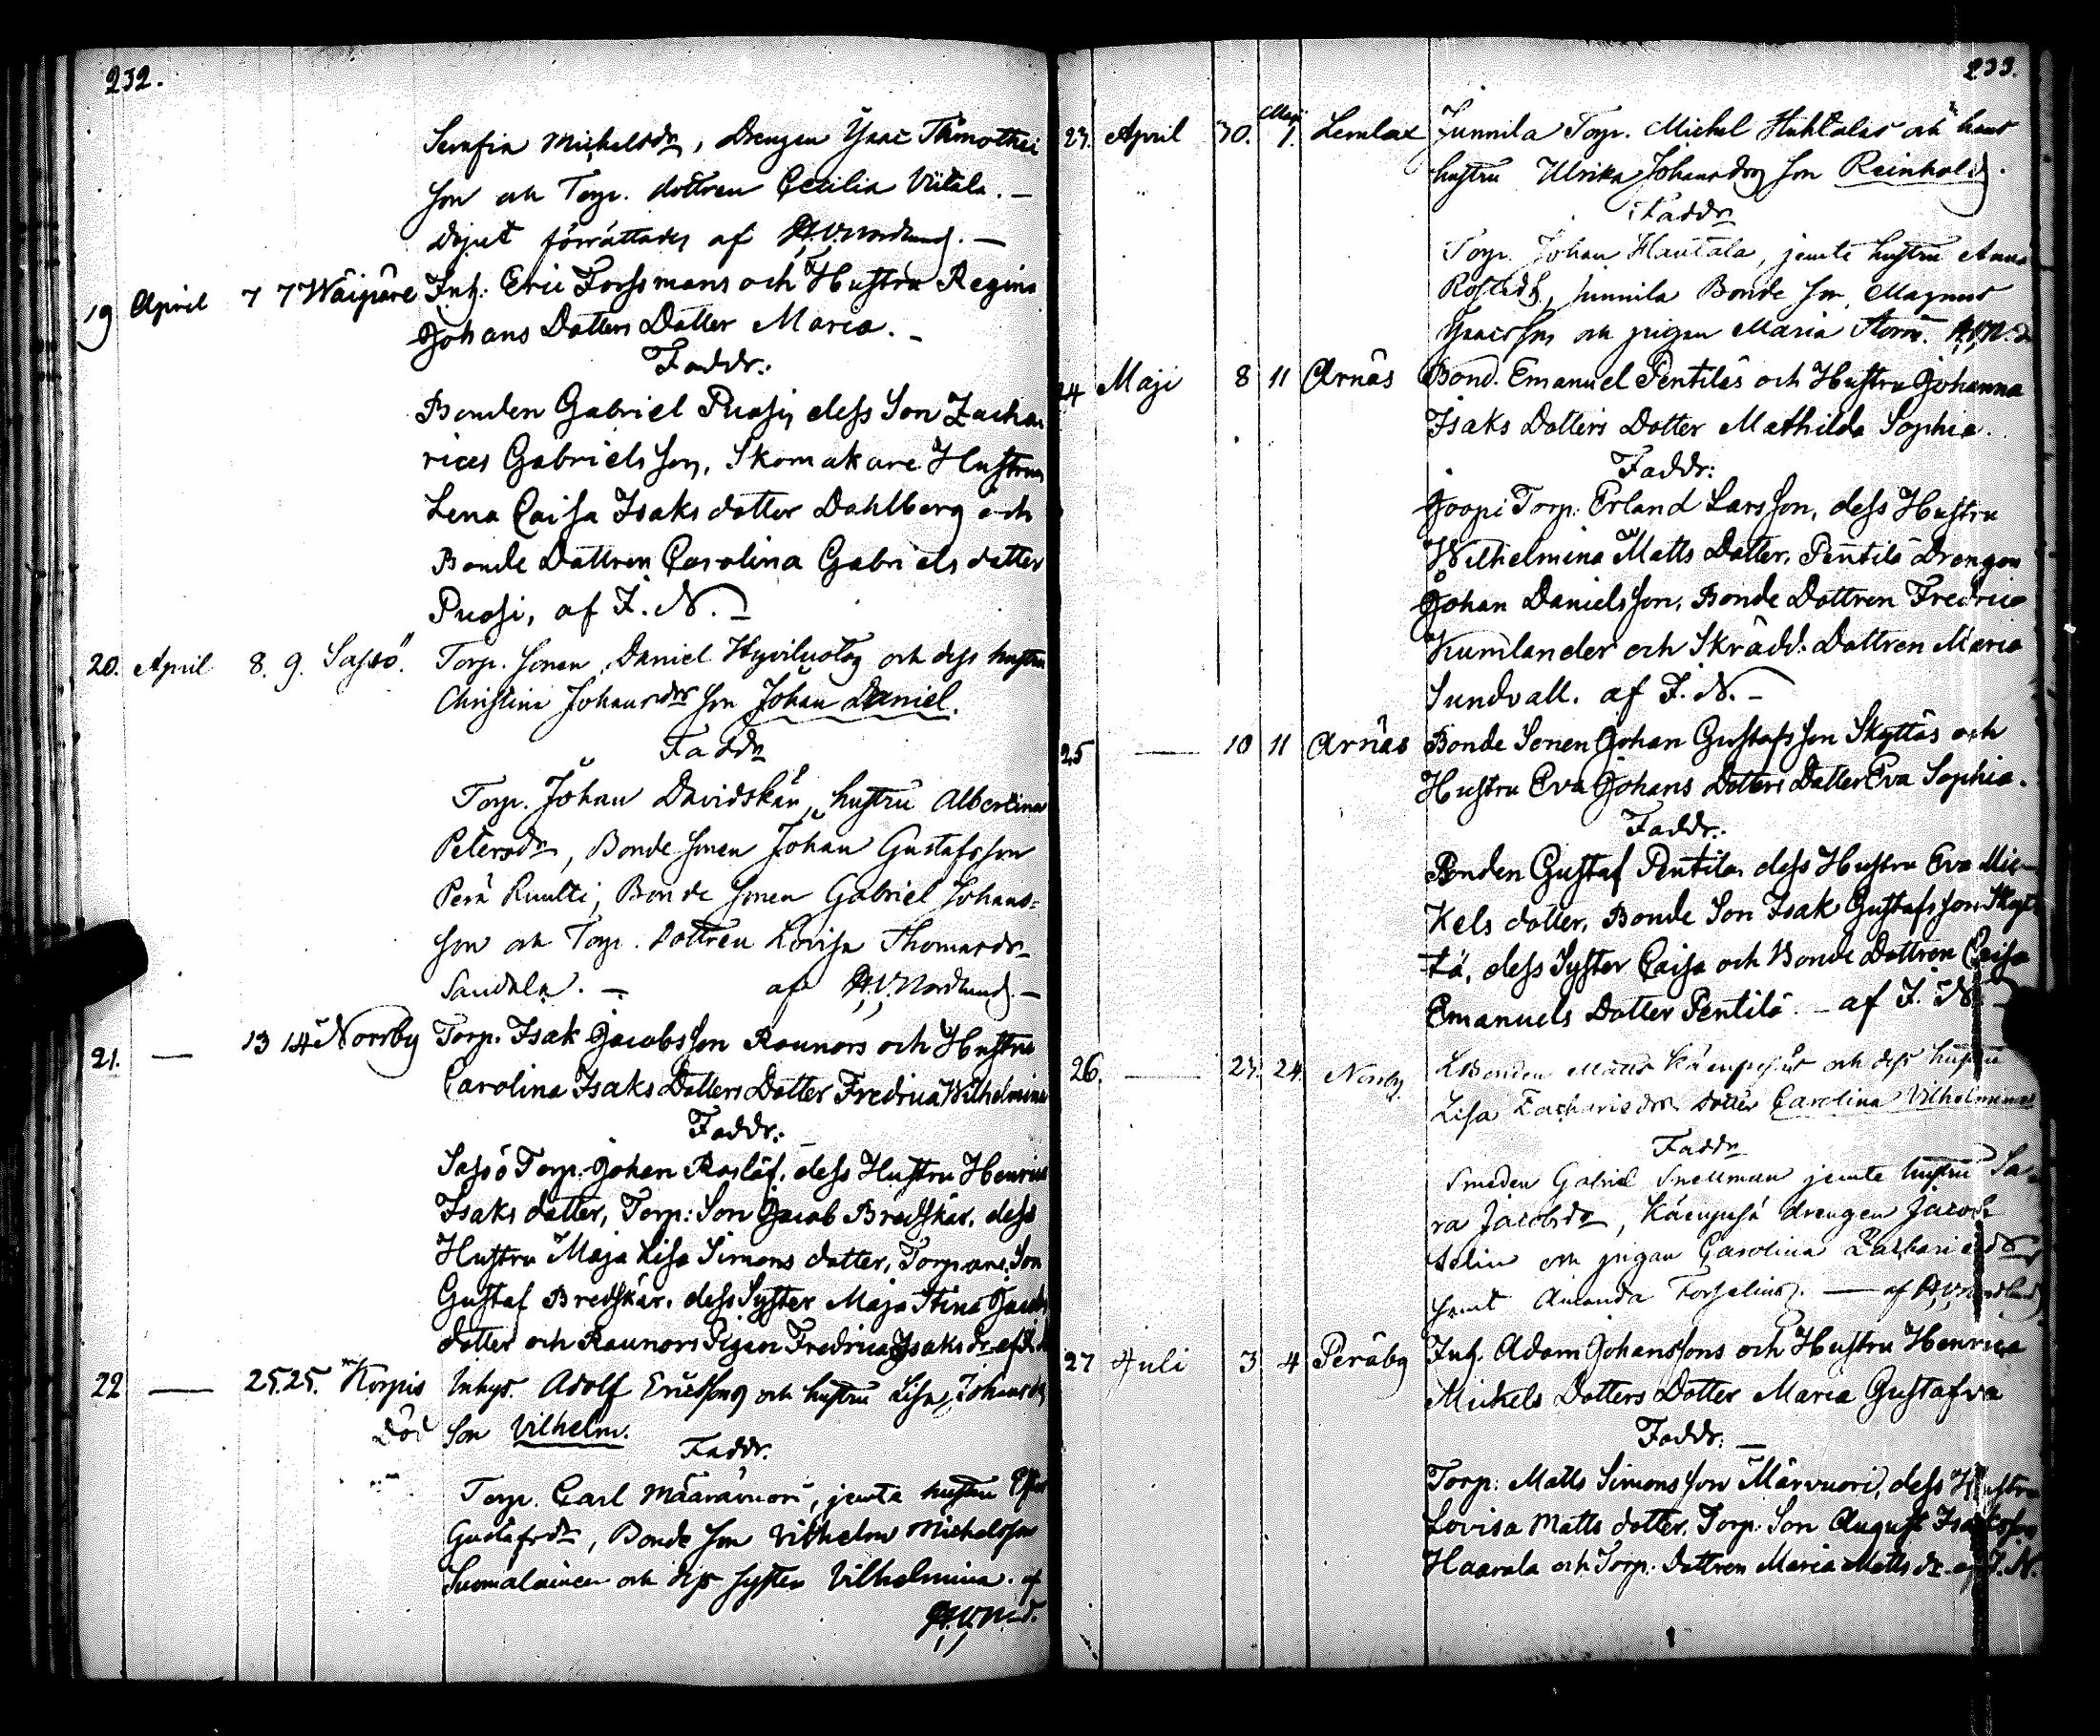 232.
Serafia Michelsdr, Drengen Ysac Thimothei
son och Torp. dottren Cecilia Viitala. —
Dopet förrättades af H.V. Nordlund. —
19 April 7 7 Waipäre Inh: Eric Forssmans och Hustru Regina
Johans Dotters Dotter Maria. —
Faddr:
Bonden Gabriel Puosi, dess Son Zacha-
rias Gabrielsson, Skomakare Hustrun
Lena Caisa Isaks dotter Dahlberg och
Bonde Dottren Carolina Gabriels dotter
Puosi, af I. N. —
20. April 8. 9. Sassö. Torp. sonen Daniel Hyviluotos och dess hustru
Christina Johansdrs son Johan Daniel.
Faddr
Torp. Johan Davidskän, hustru Albertina
Petersdr, Bonde sonen Johan Gustafsson
Perä Ruulti, Bonde sonen Gabriel Johans=
son och Torp. dottren Lovisa Thomasdr
Sandala. — af H.V. Nordlund. —
21. — 13 14 Norrby Torp. Isak Jacobsson Raunors och Hustru
Carolina Isaks Dotters Dotter Fredrica Wilhelmina
Faddr:
Sassö Torp. Johan Roslöf, dess Hustru Henrica
Isaks dotter, Torp: Son Jacob Bredskär, dess
Hustru Maja Lisa Simons dotter, Torpare Son
Gustaf Bredskär, dess Syster Maja Stina Jacobs
dotter och Raunors Pigan Fredrica Isaks dr af I. N.
22 — 25. 25. Korpis Inhys. Adolf Ericssons och hustru Lisa Johansdrs
Död son Vilhelm.
Faddr.
Torp. Carl Määrävuori, jemte hustru
Gustafsdr, Bonde son Vilhelm Michelsson
Suomalainen och dess syster Vilhelmina. af
H.V.N-d.
233.
23. April 30. Maji 1. Lemlax Junnila Torp. Michel Huhtalas och hans
hustru Ulrika Johansdrs son Reinhold.
Faddr
Torp. Johan Hautala, jemte hustru Anna
Junnila Bonde son, Magnus
Ysacsson och pigan Maria H.V.N-d
24 Maji 8 11 Arnäs Bond. Emanuel Pentiläs och Hustru Johanna
Isaks Dotters Dotter Mathilda Sophia.
Faddr:
Joopi Torp: Erland Larsson, dess Hustru
Wilhelmina Matts Dotter, Pentilä Drengen
Johan Danielsson, Bonde Dottren Fredrica
Kumlander och Skrädd: Dottren Maria
Sundvall. af I. N. —
25 — 10 11 Arnäs Bonde Sonen Johan Gustafsson Skyttäs och
Hustru Eva Johans Dotters Dotter Eva Sophia.
Faddr:
Bonden Gustaf Pentilä, dess Hustru Eva Mic-
kels dotter, Bonde Son Isak Gustafsson Skyt-
tä, dess Syster Caisa och Bonde Dottren Caisa
Emanuels Dotter Pentilä. — af I. N. —
26. — 23. 24. Norrby LBonden Matts Kämpes och dess hustru
Lisa Zacharisdrs dotter Carolina Vilhelmina
Faddr
Smeden Gabriel Snellman jemte hustru Sa-
ra Jacobsdr, drengen Jacob
och pigan Carolina Zachariedr
samt Amanda Forselius. — af H.V. Nordlund
27 Juli 3 4 Peräby Inh. Adam Johanssons och Hustru Henrica
Mickels Dotters Dotter Maria Gustafva
Faddr: —
Torp: Matts Simonsson Märvuori, dess Hustru
Lovisa Matts dotter, Torp: Son August Isaksson
Haarala och Torp: dottren Maria Matts dr. af I. N.